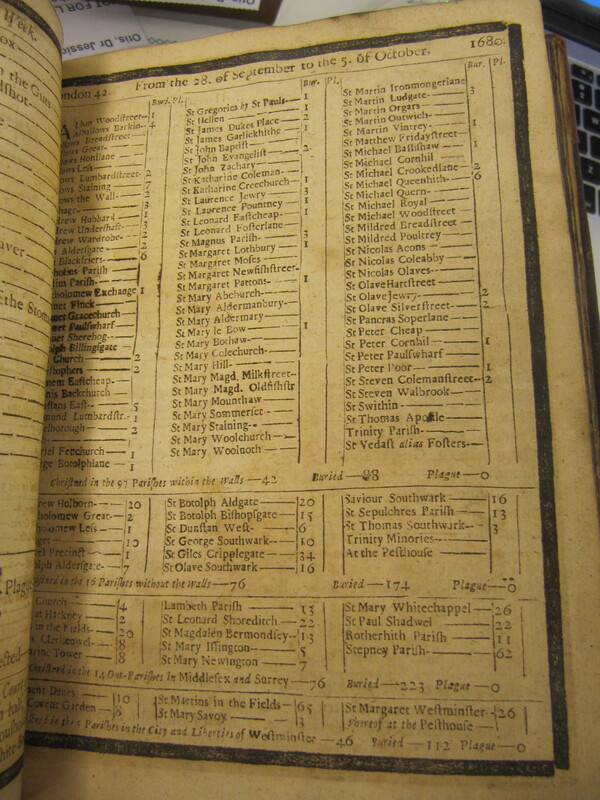 Otis, Dr Jessic
Week.
London 42. From the 28. of September to the 5. of October. 1680.
Bur. Pl.
Alban Woodstreet 1
Alhallows Barkin 4
Breadstreet
Great
Honilane
Less
Lumbardstreet 2
Staining 7
the Wall 2
3
Hubbard 1
Undershaft 3
Wardrobe 2
Aldersgate 2
Blackfriers 6
Parish
Parish
Exchange 1
Finck
Gracechurch
Paulswharf
Sherehog
Billingsgate
Church 2
2
Eastcheap
Backchurch
East 5
Lumbardstr. 1
2
Fenchurch 1
Botolphlane 1
St Gregories by St Pauls 1
St Hellen 1
St James Dukes Place 2
St James Garlickhithe 1
St John Baptist
St John Evangelist 2
St John Zachary
St Katharine Coleman
St Katharine Creechurch 1
St Laurence Jewry 3
St Laurence Pountney 1
St Leonard Eastcheap 1
St Leonard Fosterlane
St Magnus Parish 3
St Margaret Lothbury 1
St Margaret Moses
St Margaret Newfishstreet
St Margaret Pattons 1
St Mary Abchurch
St Mary Aldermanbury
St Mary Aldermary
St Mary le Bow 1
St Mary Bothaw
St Mary Colechurch
St Mary Hill
St Mary Magd. Milkstreet
St Mary Magd. Oldfishstr
St Mary Mounthaw
St Mary Sommerset
St Mary Staining
St Mary Woolchurch
St Mary Woolnoth
Bur. Pl.
St Martin Ironmongerlane
St Martin Ludgate 3
St Martin Orgars
St Martin Outwich
St Martin Vintrey 1
St Matthew Fridaystreet
St Michael Bassishaw 1
St Michael Cornhil
St Michael Crookedlane 2
St Michael Queenhith 6
St Michael Quern
St Michael Royal
St Michael Woodstreet
St Mildred Breadstreet
St Mildred Poultrey
St Nicolas Acons
St Nicolas Coleabby
St Nicolas Olaves
St Olave Hartstreet
St Olave Jewry 2
St Olave Silverstreet 2
St Pancras Soperlane
St Peter Cheap
St Peter Cornhil 1
St Peter Paulswharf
St Peter Poor 1
St Steven Colemanstreet 2
St Steven Walbrook
St Swithin
St Thomas Apostle
Trinity Parish
St Vedast alias Fosters
Christned in the 97 Parishes within the Walls 42 Buried 88 Plague 0
Holborn 20
Great 2
Less 1
10
Precinct 1
Aldersgate 7
St Botolph Aldgate 20
St Botolph Bishopsgate 15
St Dunstan West 6
St George Southwark 10
St Giles Cripplegate 34
St Olave Southwark 16
Saviour Southwark 16
St Sepulchres Parish 13
St Thomas Southwark 3
Trinity Minories
At the Pesthouse
in the 16 Parishes without the Walls 76 Buried 174 Plague 0
Church 4
Hackney 2
in the Fields 20
Clerkenwel 8
Tower 8
Lambeth Parish 13
St Leonard Shoreditch 22
St Magdalen Bermondsey 13
St Mary Islington 5
St Mary Newington 7
St Mary Whitechappel 26
St Paul Shadwel 22
Rotherhith Parish 11
Stepney Parish 62
Christned in the 14 Out-Parishes in Middlesex and Surrey 76 Buried 223 Plague 0
Danes 10
Covent Garden 8
St Martins in the Fields 65
St Mary Savoy 3
St Margaret Westminster 26
Whereof at the Pesthouse
in the Parishes in the City and Liberties of Westminster 46 Buried 112 Plague 0